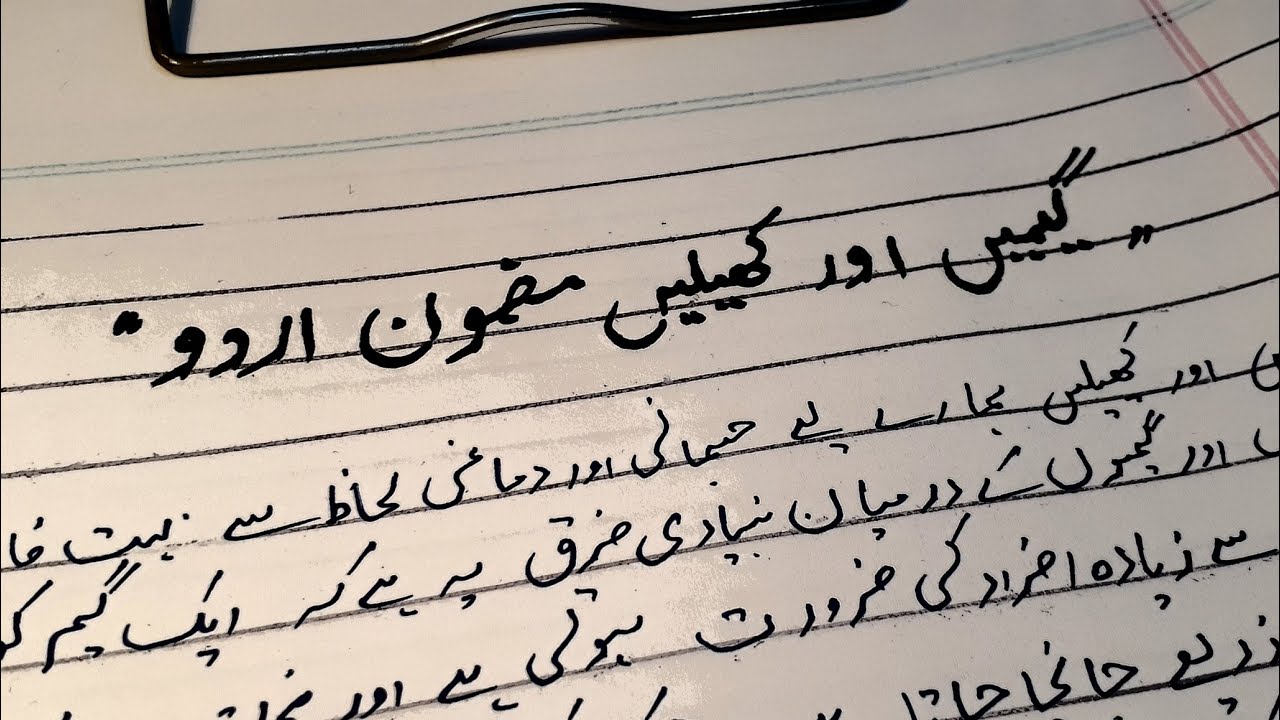 "گیمیں اور کھیلیں مضمون اردو"
اور کھیلیں ہمارے لیے جسمانی اور دماغی لحاظ سے بہت فا
اور گیموں کے درمیان بنیادی فرق یہ ہے کہ ایک گیم کو
سے زیادہ افراد کی ضرورت ہوتی ہے اور
ذریعے جانا جاتا